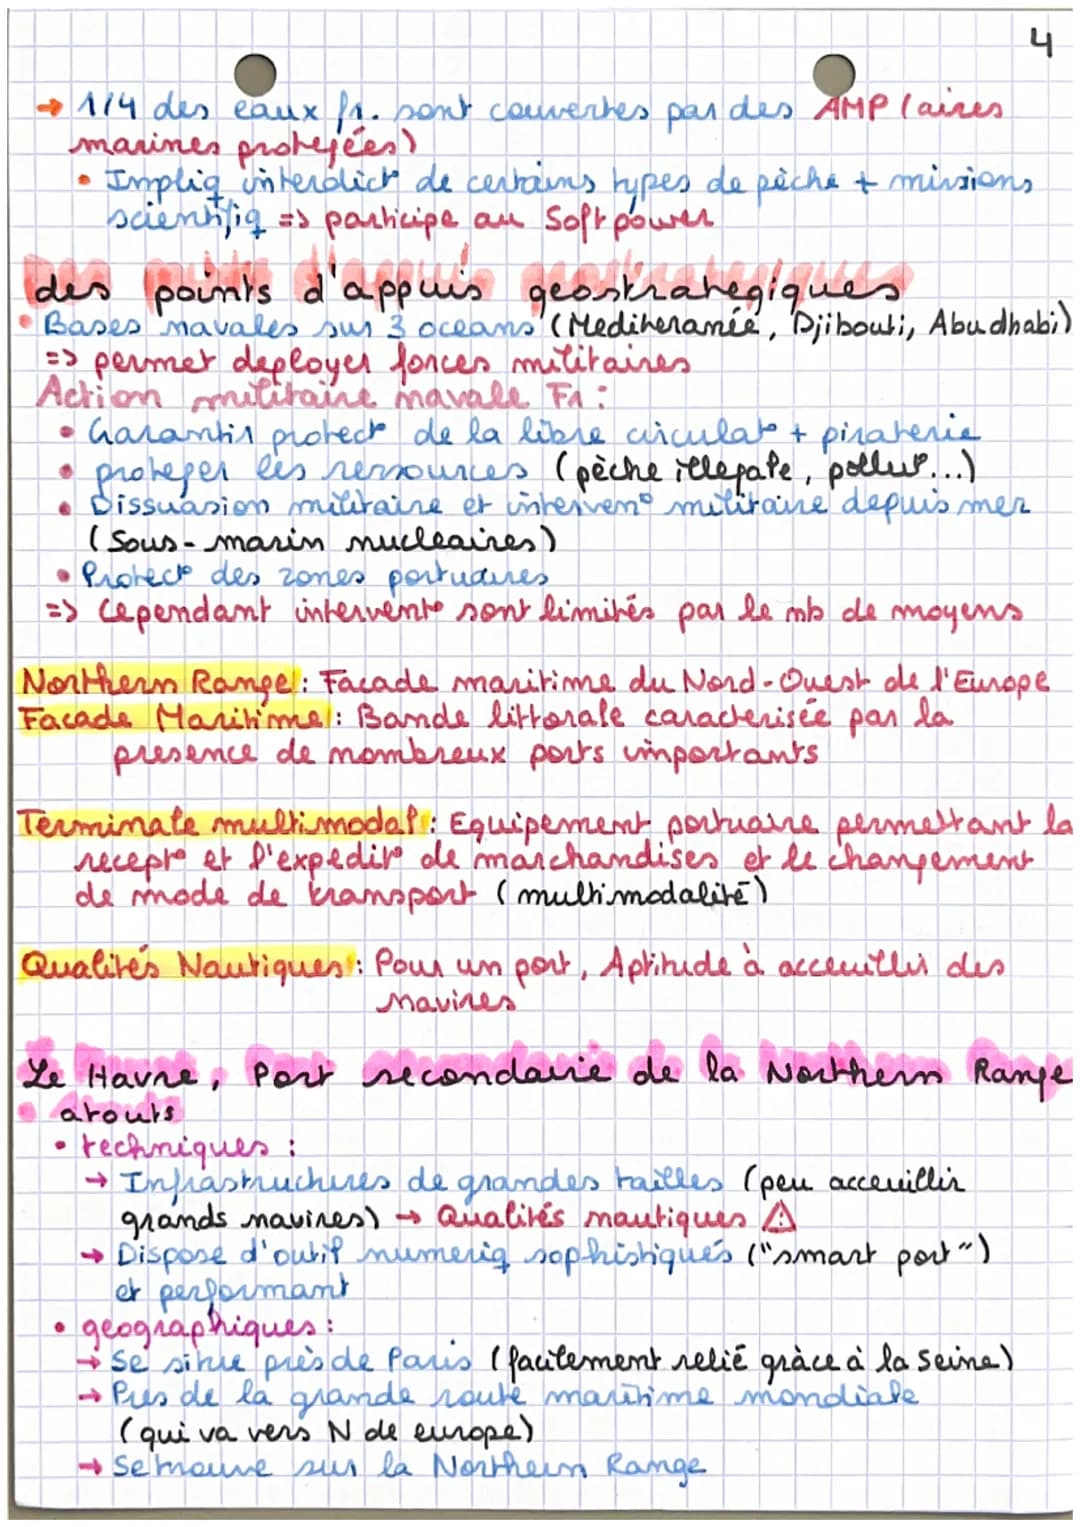 4
→ 1/4 des eaux fr. sont couvertes par des AMP (aires
marines protegées)
• Impliq interdict° de certains types de pèche + missions
scientifiq => participe au Soft power
des points d'appuis geostrategiques
• Bases navales sur 3 oceans (Mediterranée, Djibouti, Abu dhabi)
=> permet deployer forces militaires
Action militaire navale Fr :
• Garantir protect° de la libre circulat° + piraterie
• proteger les ressources (pèche illegale, pollut°...)
• Dissuasion militaire et intervent° militaire depuis mer
(Sous-marin nucleaires)
• Protect° des zones portuaires
=> Cependant intervent° sont limités par le nb de moyens
Northern Range : Facade maritime du Nord-Ouest de l'Europe
Facade Maritime : Bande littorale caracterisée par la
presence de nombreux ports importants
Terminale multimodal : Equipement portuaire permettant la
recept° et l'expedit° de marchandises et le changement
de mode de transport (multimodalité)
Qualités Nautiques : Pour un port, Aptitude à acceuillir des
navires
Le Havre, Port secondaire de la Northern Range
• atouts
• techniques :
→ Infrastructures de grandes tailles (peu acceuillir
grands navires) → Qualités nautiques ⚠
→ Dispose d'outil numeriq sophistiqués ("smart port")
et performant
• geographiques :
→ Se situe près de Paris (facilement relié grâce à la Seine)
→ Pres de la grande route maritime mondiale
(qui va vers N de europe)
→ Se trouve sur la Northern Range